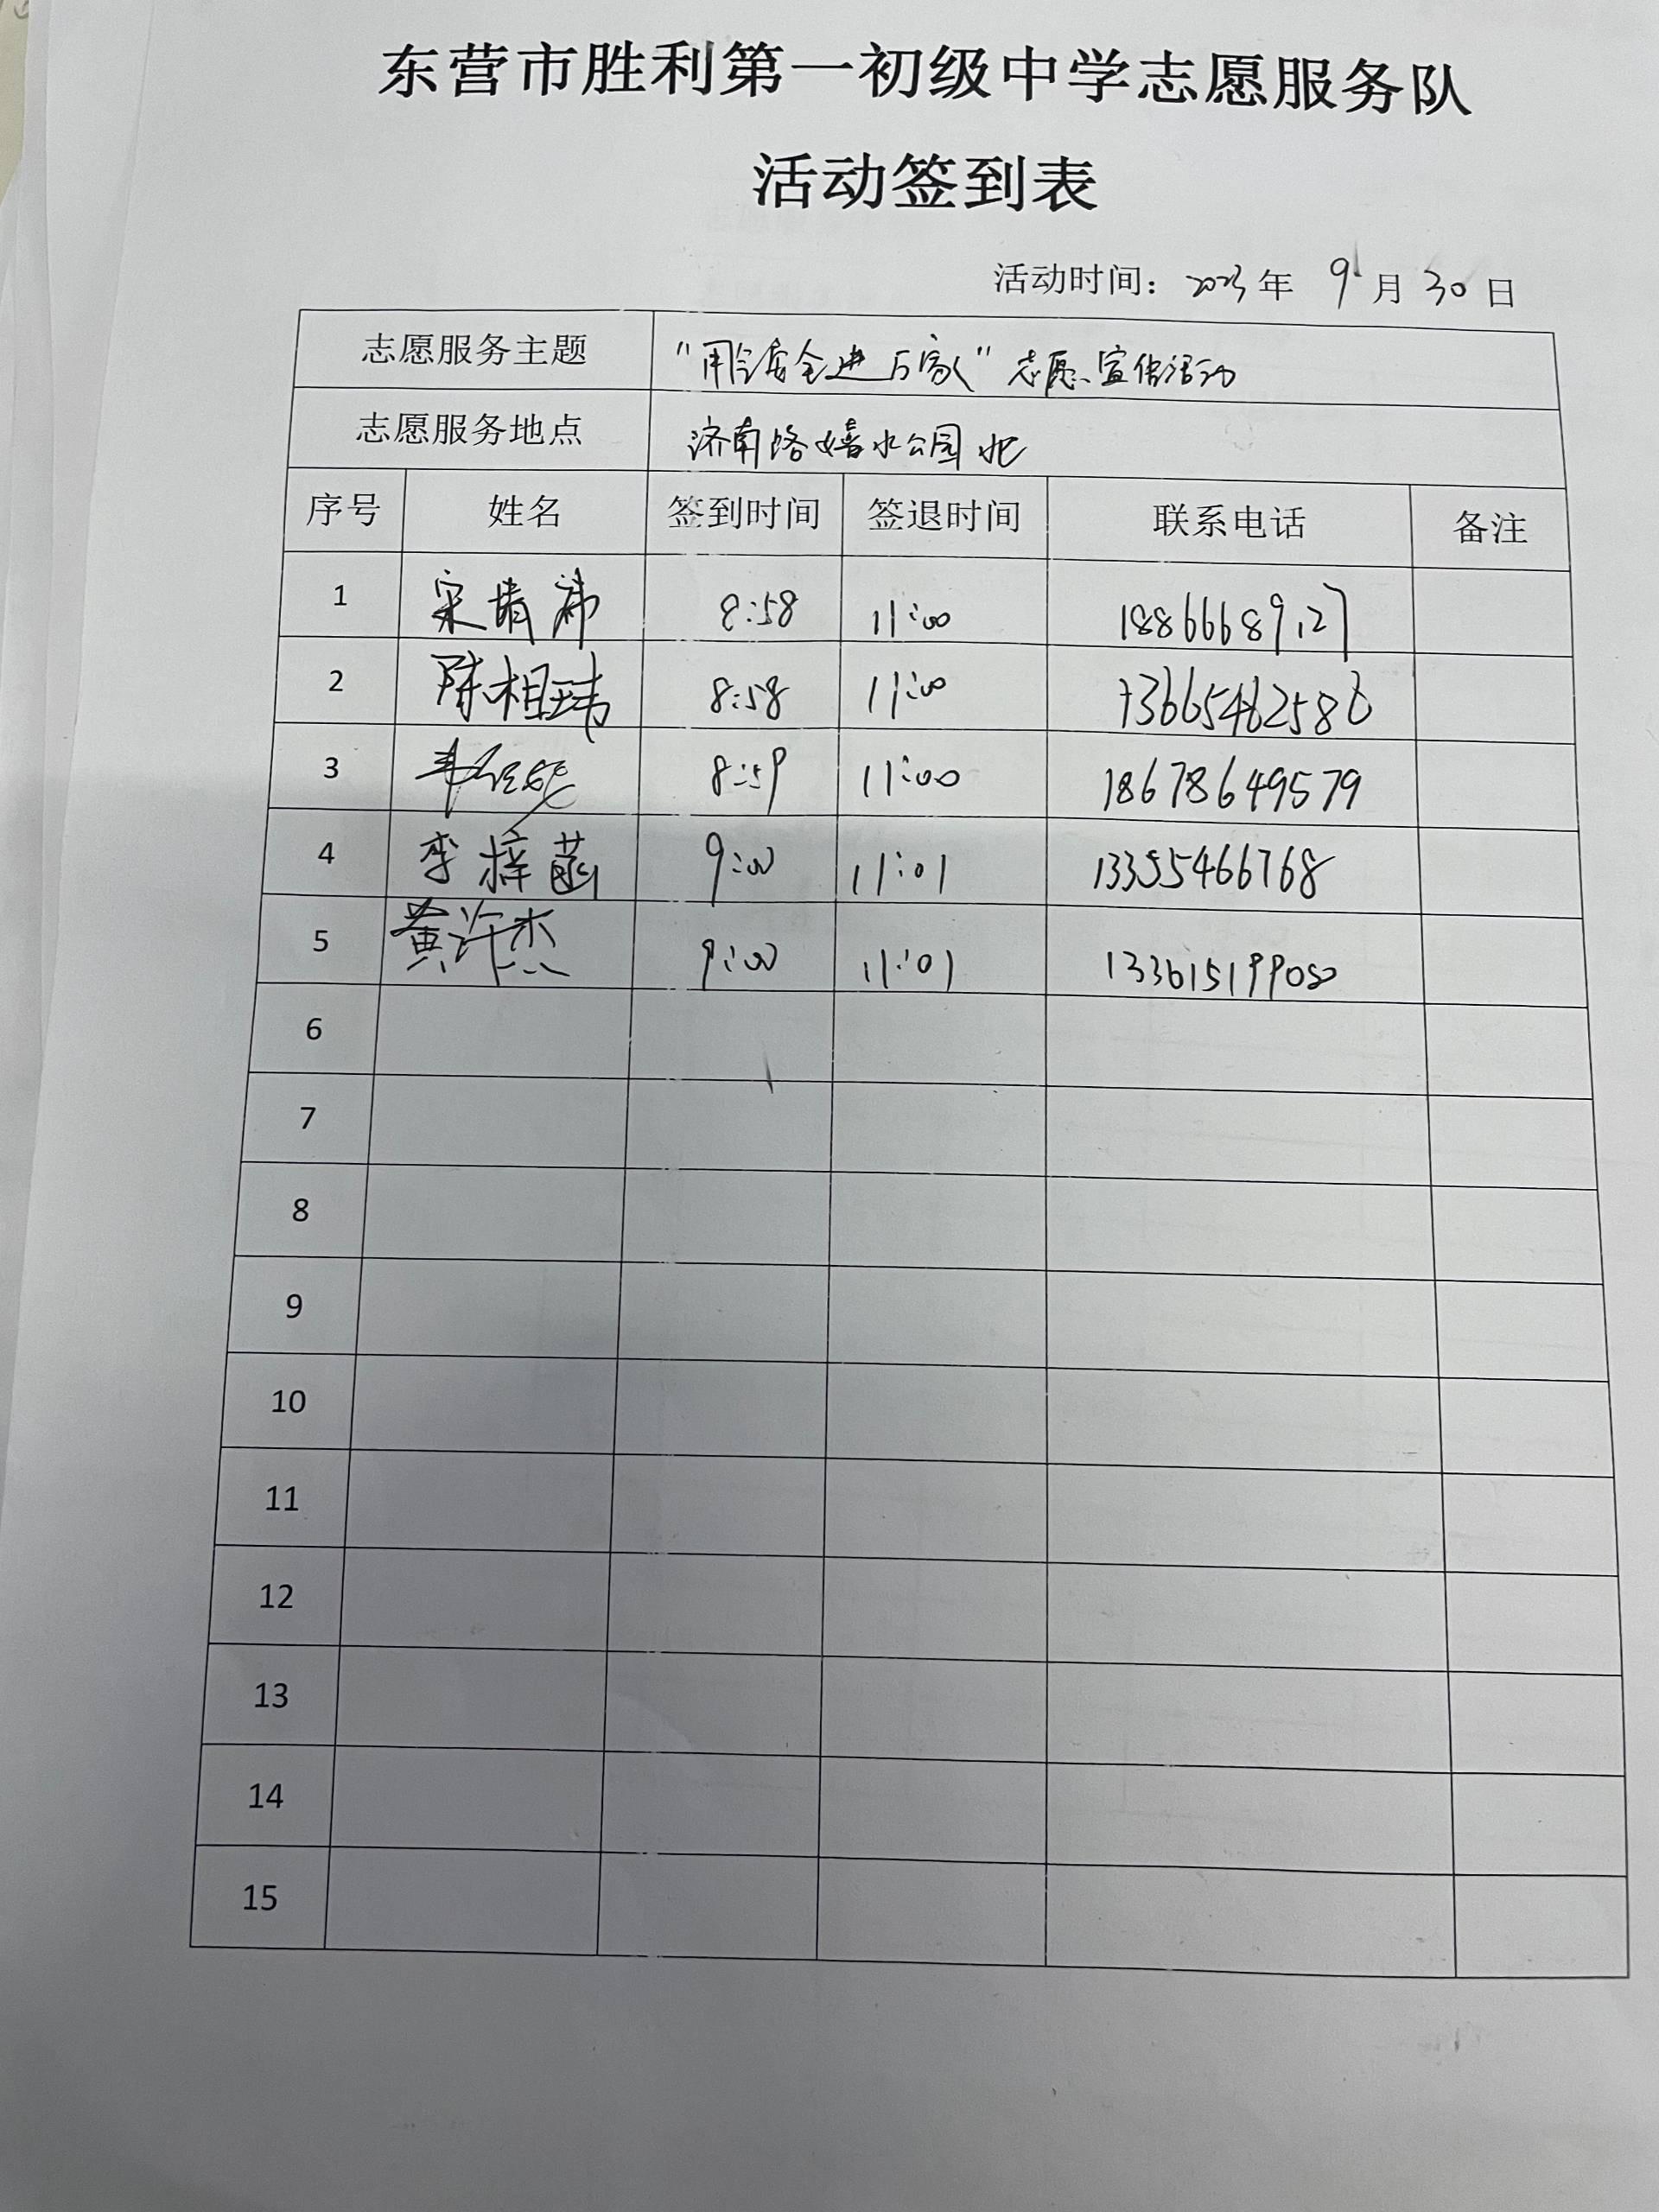 东营市胜利第一初级中学志愿服务队
活动签到表
活动时间：2023年 9月30日
志愿服务主题 "用气安全进万家"志愿宣传活动
志愿服务地点 济南路嬉水公园北
序号 姓名 签到时间 签退时间 联系电话 备注
1 宋靖 8:58 11:00 18866689127
2 陈相玮 8:58 11:00 13665462586
3 8:59 11:00 18678649579
4 李梓菡 9:00 11:01 13355466768
5 黄许杰 9:00 11:01
6
7
8
9
10
11
12
13
14
15